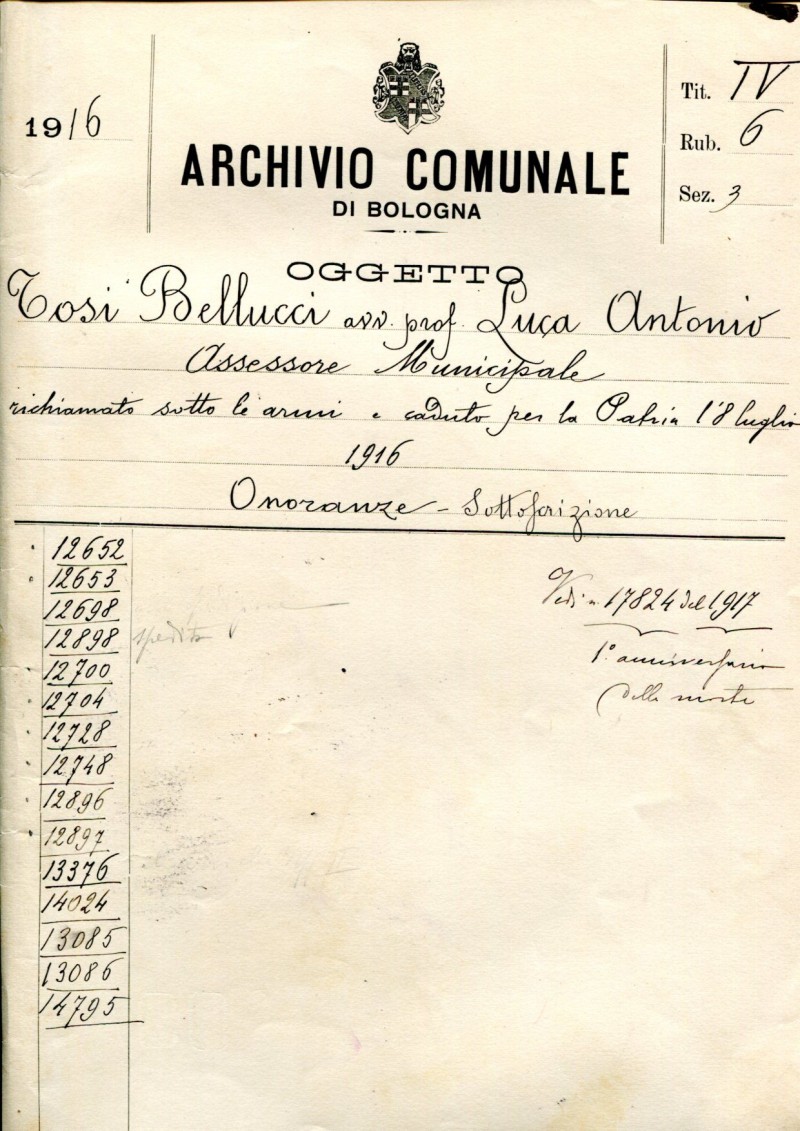 1916
ARCHIVIO COMUNALE
DI BOLOGNA
Tit. IV
Rub. 6
Sez. 3
OGGETTO
Tosi Bellucci avv. prof. Luca Antonio
Assessore Municipale
richiamato sotto le armi e caduto per la Patria l'8 luglio
1916
Onoranze - Sottoscrizione
12652
12653
12698
12898 spedita
12700
12704
12728
12748
12896
12897
13376
14024
13085
13086
14795
Vedi n. 17824 del 1917
1° anniversario
della morte